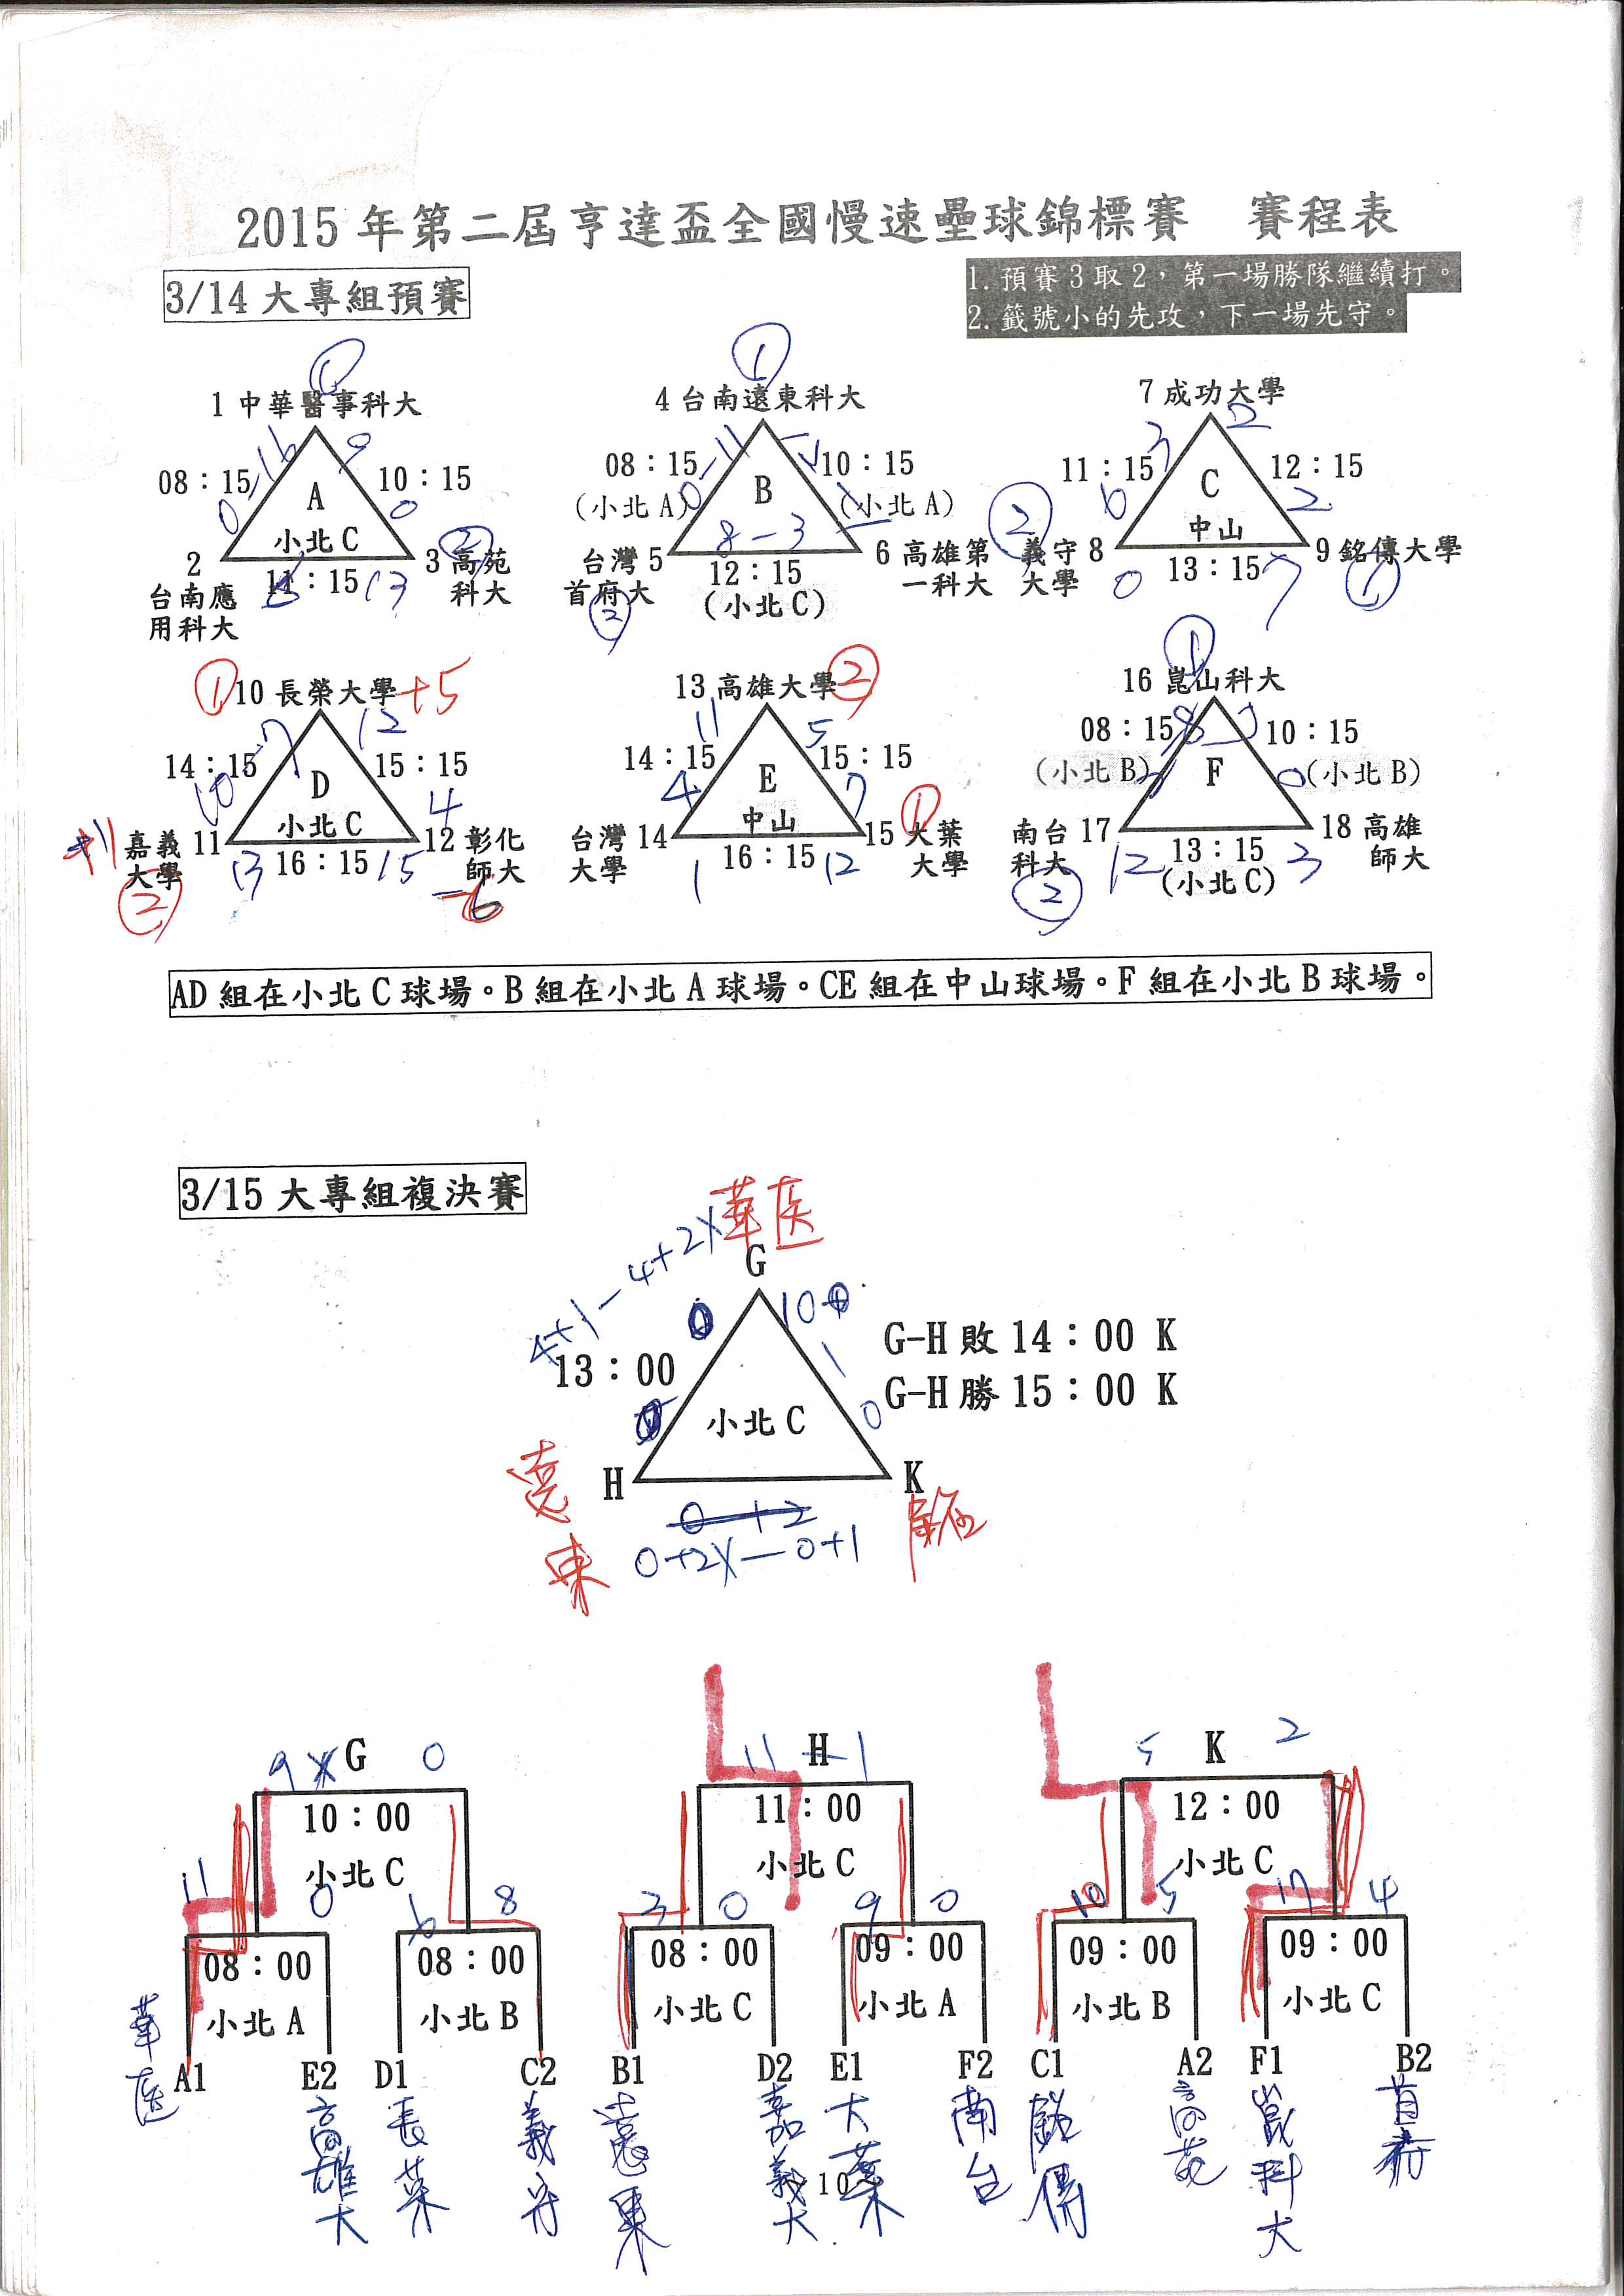 2015 年第二屆亨達盃全國慢速壘球錦標賽　賽程表
3/14 大專組預賽
1. 預賽 3 取 2，第一場勝隊繼續打。
2. 籤號小的先攻，下一場先守。
①
1 中華醫事科大
08：15
0-16
9
10：15
0
A
小北 C
2
台南應
用科大
11：15
13
②
3 高苑
科大
①
4 台南遠東科大
08：15
(小北 A)
0-11
10：15
(小北 A)
B
8-3
台灣 5
首府大
②
12：15
(小北 C)
6 高雄第
一科大
7 成功大學
11：15
3
2
12：15
2
C
中山
②
義守 8
大學
0
13：15
7
9 銘傳大學
①
①
10 長榮大學
+5
14：15
10-7
12
15：15
4
D
小北 C
+1
嘉義 11
大學
②
13
16：15
15
12 彰化
師大
-6
13 高雄大學
②
14：15
11
4
5
15：15
7
E
中山
台灣 14
大學
1
16：15
12
①
15 大葉
大學
①
16 崑山科大
08：15
(小北 B)
8
10：15
(小北 B)
0
F
南台 17
科大
②
12
13：15
(小北 C)
3
18 高雄
師大
AD 組在小北 C 球場。B 組在小北 A 球場。CE 組在中山球場。F 組在小北 B 球場。
3/15 大專組複決賽
華医
G
4+1-4+2X
13：00
10
1
0
小北 C
G-H 敗 14：00 K
G-H 勝 15：00 K
H
遠東
K
0+2
0+2X-0+1
9X
G
0
10：00
小北 C
11
0
6
8
08：00
小北 A
08：00
小北 B
A1
華医
E2
高雄大
D1
長榮
C2
義守
11-1
H
11：00
小北 C
3
0
9
0
08：00
小北 C
09：00
小北 A
B1
遠東
D2
嘉義大
E1
大葉
F2
南台
5
K
2
12：00
小北 C
10
5
17
4
09：00
小北 B
09：00
小北 C
C1
銘傳
A2
高苑
F1
崑科大
B2
首府
10